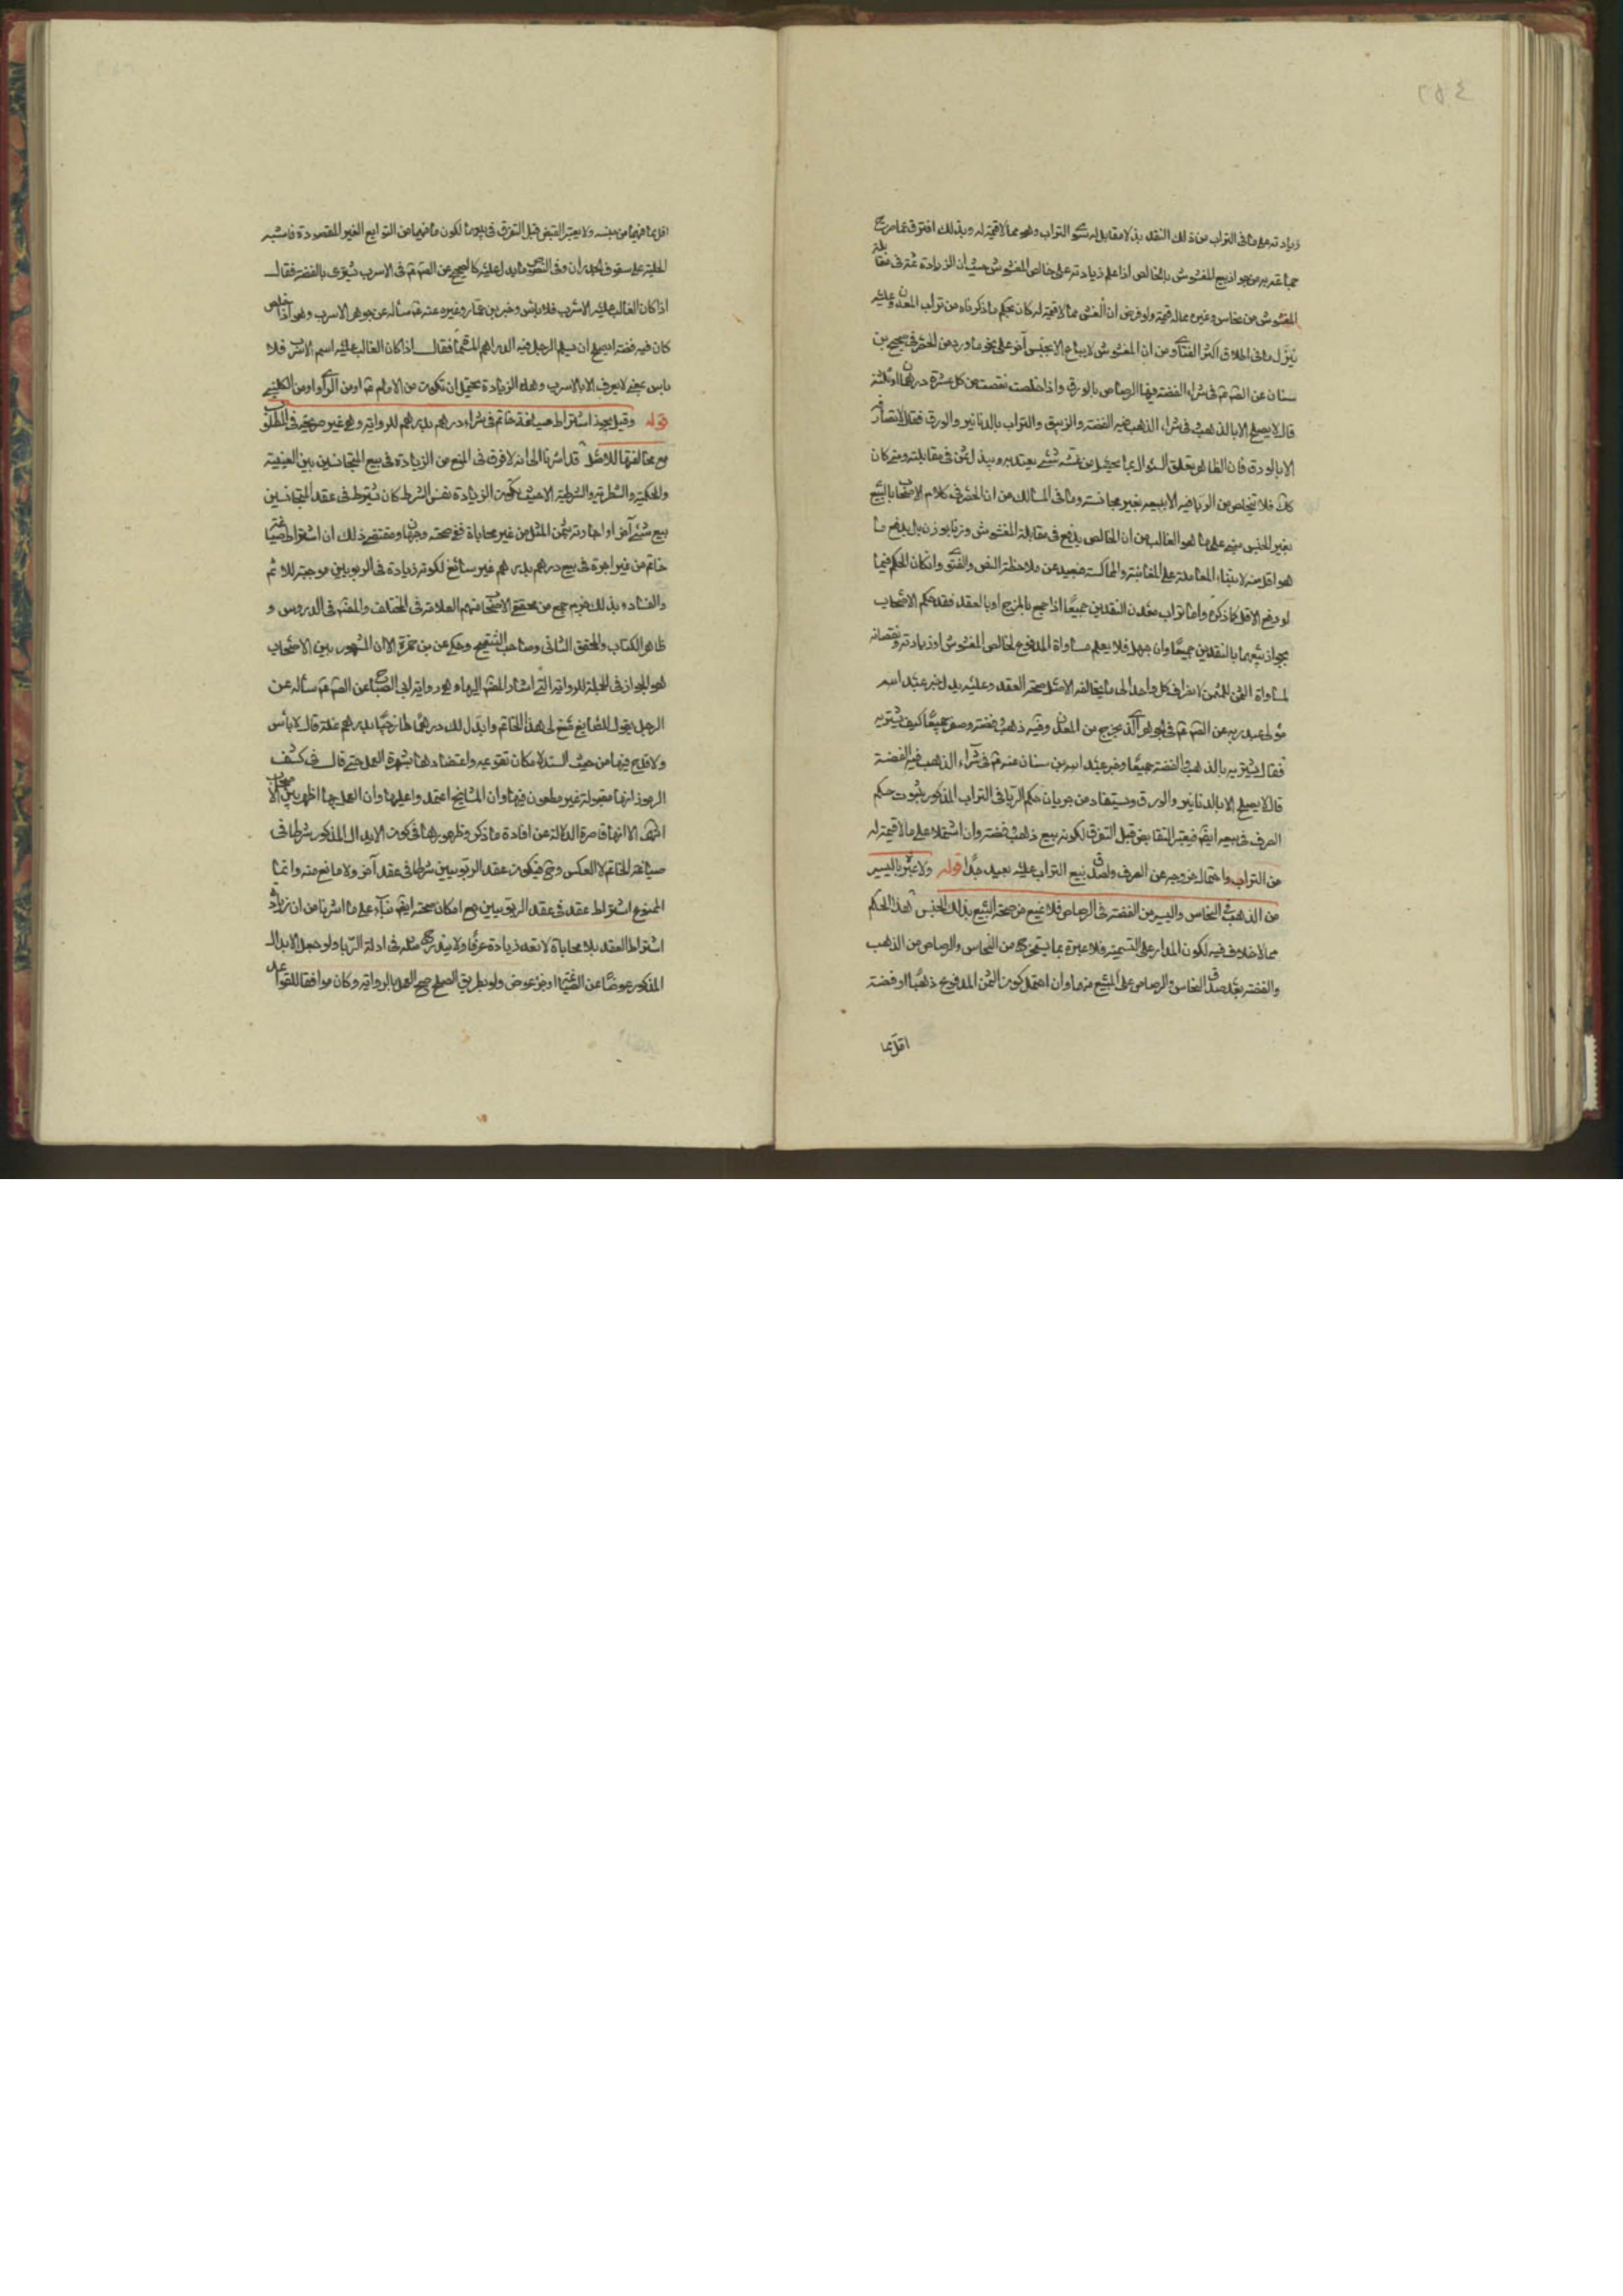 ٢٥٤
زيادته على ما في التراب من ذلك النقد بذلا مقابل له سوى التراب وهو مما لا قيمة له وبذلك افترق عما صرح
جماعة به من جواز بيع المغشوش بالخالص اذا علم زيادته على خالص المغشوش حيث ان الزيادة ثمة في مقابلة
المغشوش من نحاس وغيره مما له قيمة ولو فرض ان الغش مما لا قيمة له كان بحكم ما ذكرناه من تراب المعدن وعليه
ينزل ما في اطلاق اكثر الفتاوى من ان المغشوش لا يباع الا بجنس آخر على نحو ما ورد من الحصر في صحيح بن
سنان عن الصم ع في شراء الفضة فيها الرصاص بالورق واذا خلصت نقصت من كل عشرة درهمان او ثلثة
قال لا يصلح الا بالذهب وفي شراء الذهب فيه الفضة والزيبق والتراب بالدنانير والورق فقال لا تصارفه
الا بالورق فان الظاهر تعلق السؤال بما يحصل من غشه شئ يعتد به ويبذل ثمن في مقابلته ومتى كان
كان فلا تخلص من الربا فيه الا ببيعه بغير مجانسة وما في المسالك من ان الحصر في كلام الاصحاب بالبيع
بغير الجنس مبني على ما هو الغالب من ان الخالص يدفع في مقابلة المغشوش وزنا بوزن بل يدفع ما
هو اقل منه لابتناء المعاملة على المغابنة والمماكسة فبعيد عن ملاحظة النص والفتوى وان كان الحكم فيما
لو دفع الاقل كما ذكره واما تراب معدن النقدين جميعا اذا جمع بالمزج او بالعقد فقد حكم الاصحاب
بجواز بيعهما بالنقدين جميعا وان جهل فلا يعلم مساواة المدفوع لخالص المغشوش او زيادته ونقصانه
لمساواة الثمن للمثمن لانصراف كل واحد الى ما يخالفه الاصل صحة العقد وعليه يدل خبر عبد الله
مولى عبد ربه عن الصم ع في الجوهر الذي يخرج من المعدن وفيه ذهب وفضة وصفر جميعا كيف نشتريه
فقال يشتريه بالذهب والفضة جميعا وخبر عبد الله بن سنان عنه ع في شراء الذهب فيه الفضة
قال لا يصلح الا بالدنانير والورق ويستفاد من جريان حكم الربا في التراب المذكور ثبوت حكم
الصرف في بيعه ايضا فيعتبر التقابض قبل التفرق لكونه بيع ذهب وفضة وان اشتملا على ما لا قيمة له
من التراب واحتمال خروجه عن الصرف ولصدق بيع التراب عليه بعيد جدا قوله ولا عبرة باليسير
من الذهب في النحاس واليسير من الفضة في الرصاص فلا يمنع من صحة البيع بذلك الجنس هذا الحكم
مما لا خلاف فيه لكون المدار على التسمية فلا عبرة بما يستخرج من النحاس والرصاص من الذهب
والفضة بعد صدق النحاس والرصاص على المبيع منهما وان احتمل كون الثمن المدفوع ذهبا او فضة
اقل مما
اقل مما فيهما من جنسه ولا يعتبر القبض قبل التفرق في بيعهما لكون ما فيهما من التوابع الغير المقصودة فاشبه
الحلية على سقوف الجدران وفي النصوص ما يدل عليه كالصحيح عن الصم ع في الاسرب يشترى بالفضة فقال
اذا كان الغالب عليه الاسرب فلا باس وخبر بن عمار وغيره عنه ع سأله عن جوهر الاسرب وهو اذا خلص
كان فيه فضة ايصلح ان يسلم الرجل فيه الدراهم المسماة فقال اذا كان الغالب عليه اسم الاسرب فلا
باس يعني لا يعرف الا بالاسرب وهذه الزيادة يحتمل ان تكون من الامام ع او من الراوي او من الكليني
قوله وقيل يجوز اشتراط صياغة خاتم في شراء درهم بدرهم للرواية وهي غير صريحة في المطلوب
مع مخالفتها للاصل قد اشرنا الى انه لا فرق في المنع من الزيادة في بيع المتجانسين بين العينية
والحكمية والشطرية والشرطية الا حيث يكون الزيادة نفس الشرط كان يشترط في عقد المتجانسين
بيع شئ آخر او اجارته بثمن المثل من غير محاباة ففي صحته وجهان ومقتضى ذلك ان اشتراط صياغة
خاتم من غير اجرة في بيع درهم بدرهم غير سائغ لكونه زيادة في الربويين موجبة للاثم
والفساد وبذلك جزم جمع من محققي الاصحاب منهم العلامة في المختلف والمصنف في الدروس و
ظاهر الكتاب والمحقق الثاني وصاحب التنقيح وحكي عن بن حمزة الا ان المشهور بين الاصحاب
هو الجواز في الجملة للرواية التي اشار المصنف اليها وهي رواية ابي الصباح عن الصم ع سأله عن
الرجل يقول للصايغ صغ لي هذا الخاتم وابدل لك درهما طازجيا بدرهم غلة قال لا بأس
ولا قدح فيها من حيث السند لامكان تقويته واعتضادها بشهرة العمل حتى قال في كشف
الرموز انها مقبولة غير مطعون فيها وان المشايخ اعتمدوا عليها وان العمل بها اظهر بين الاصحاب
انتهى الا انها قاصرة الدلالة عن افادة ما ذكر وظهورها في كون الابدال المذكور شرطا في
صياغة الخاتم لا العكس وح فيكون عقد الربويين شرطا في عقد آخر ولا مانع منه وانما
الممنوع اشتراط عقد في عقد الربويين مع امكان صحته ايضا بناء على ما اشرنا من ان زيادة
اشتراط العقد بلا محاباة لا تعد زيادة عرفا ولا يندرج مثله في ادلة الربا ولو جعل الابدال
المذكور عوضا عن الصياغة او جزء عوض ولو بطريق الصلح صح العمل بالرواية وكان موافقا للقواعد